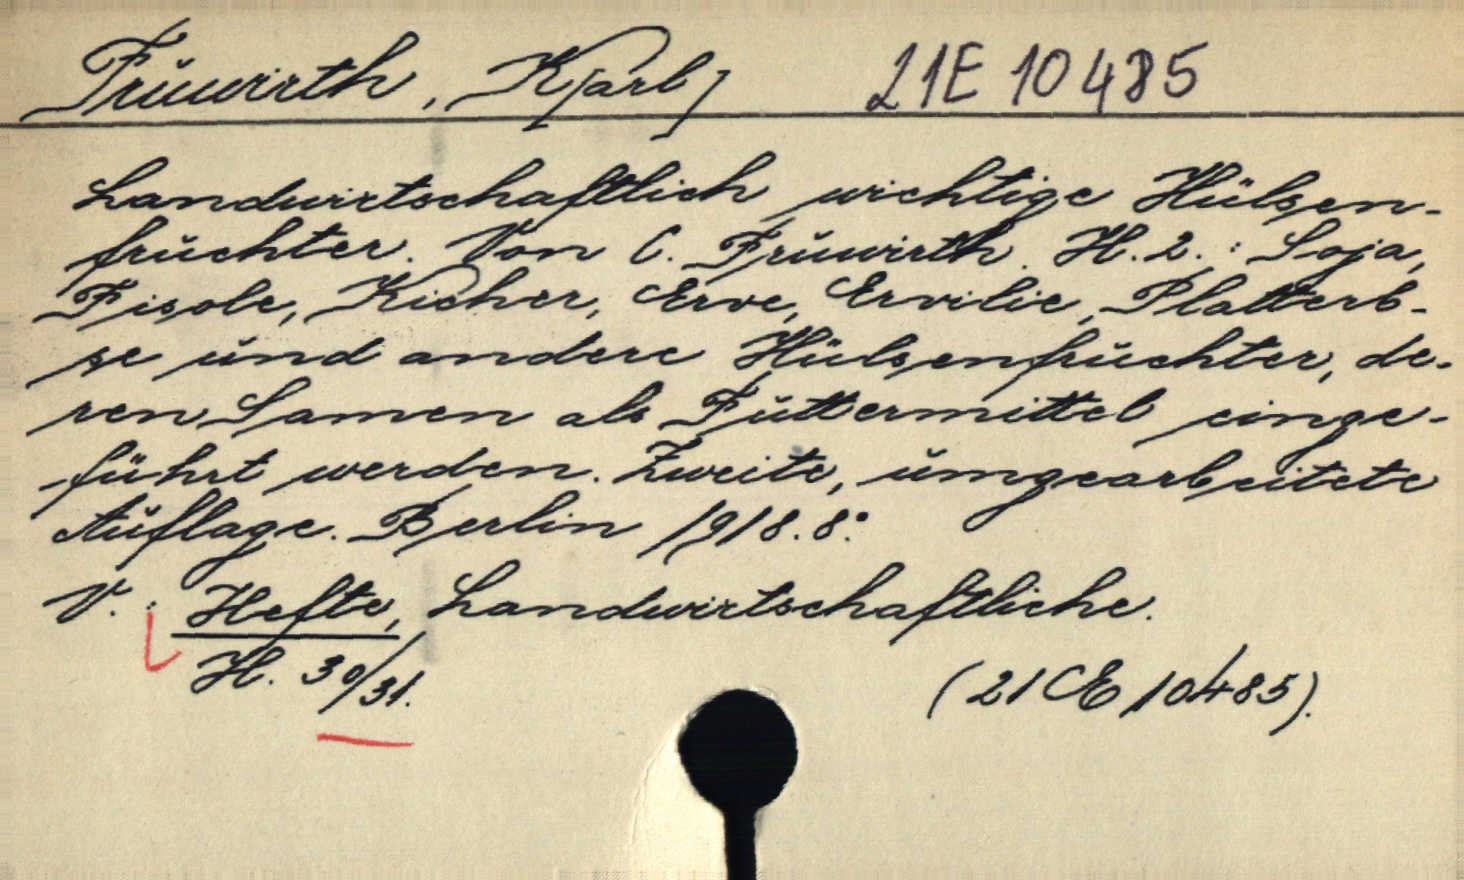 Fruwirth, K[arl] 21E 10485
Landwirtschaftlich wichtige Hülsen-
früchter. Von C. Fruwirth. H. 2. : Soja,
Fisole, Kicher, Erve, Ervilie, Platterb-
se und andere Hülsenfrüchter, de-
ren Samen als Futtermittel einge-
führt werden. Zweite, umgearbeitete
Auflage. Berlin 1918. 8°.
V. : Hefte, Landwirtschaftliche.
H. 30/31.
(21 E 10485).